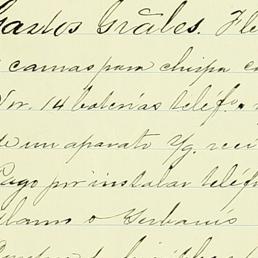 Gastos Gräles. Fle
camas para chispa co
Por. 14 baterias teléf.º
de un aparato Yg. reci
Pago por instalar teléfo
o Yerbanis